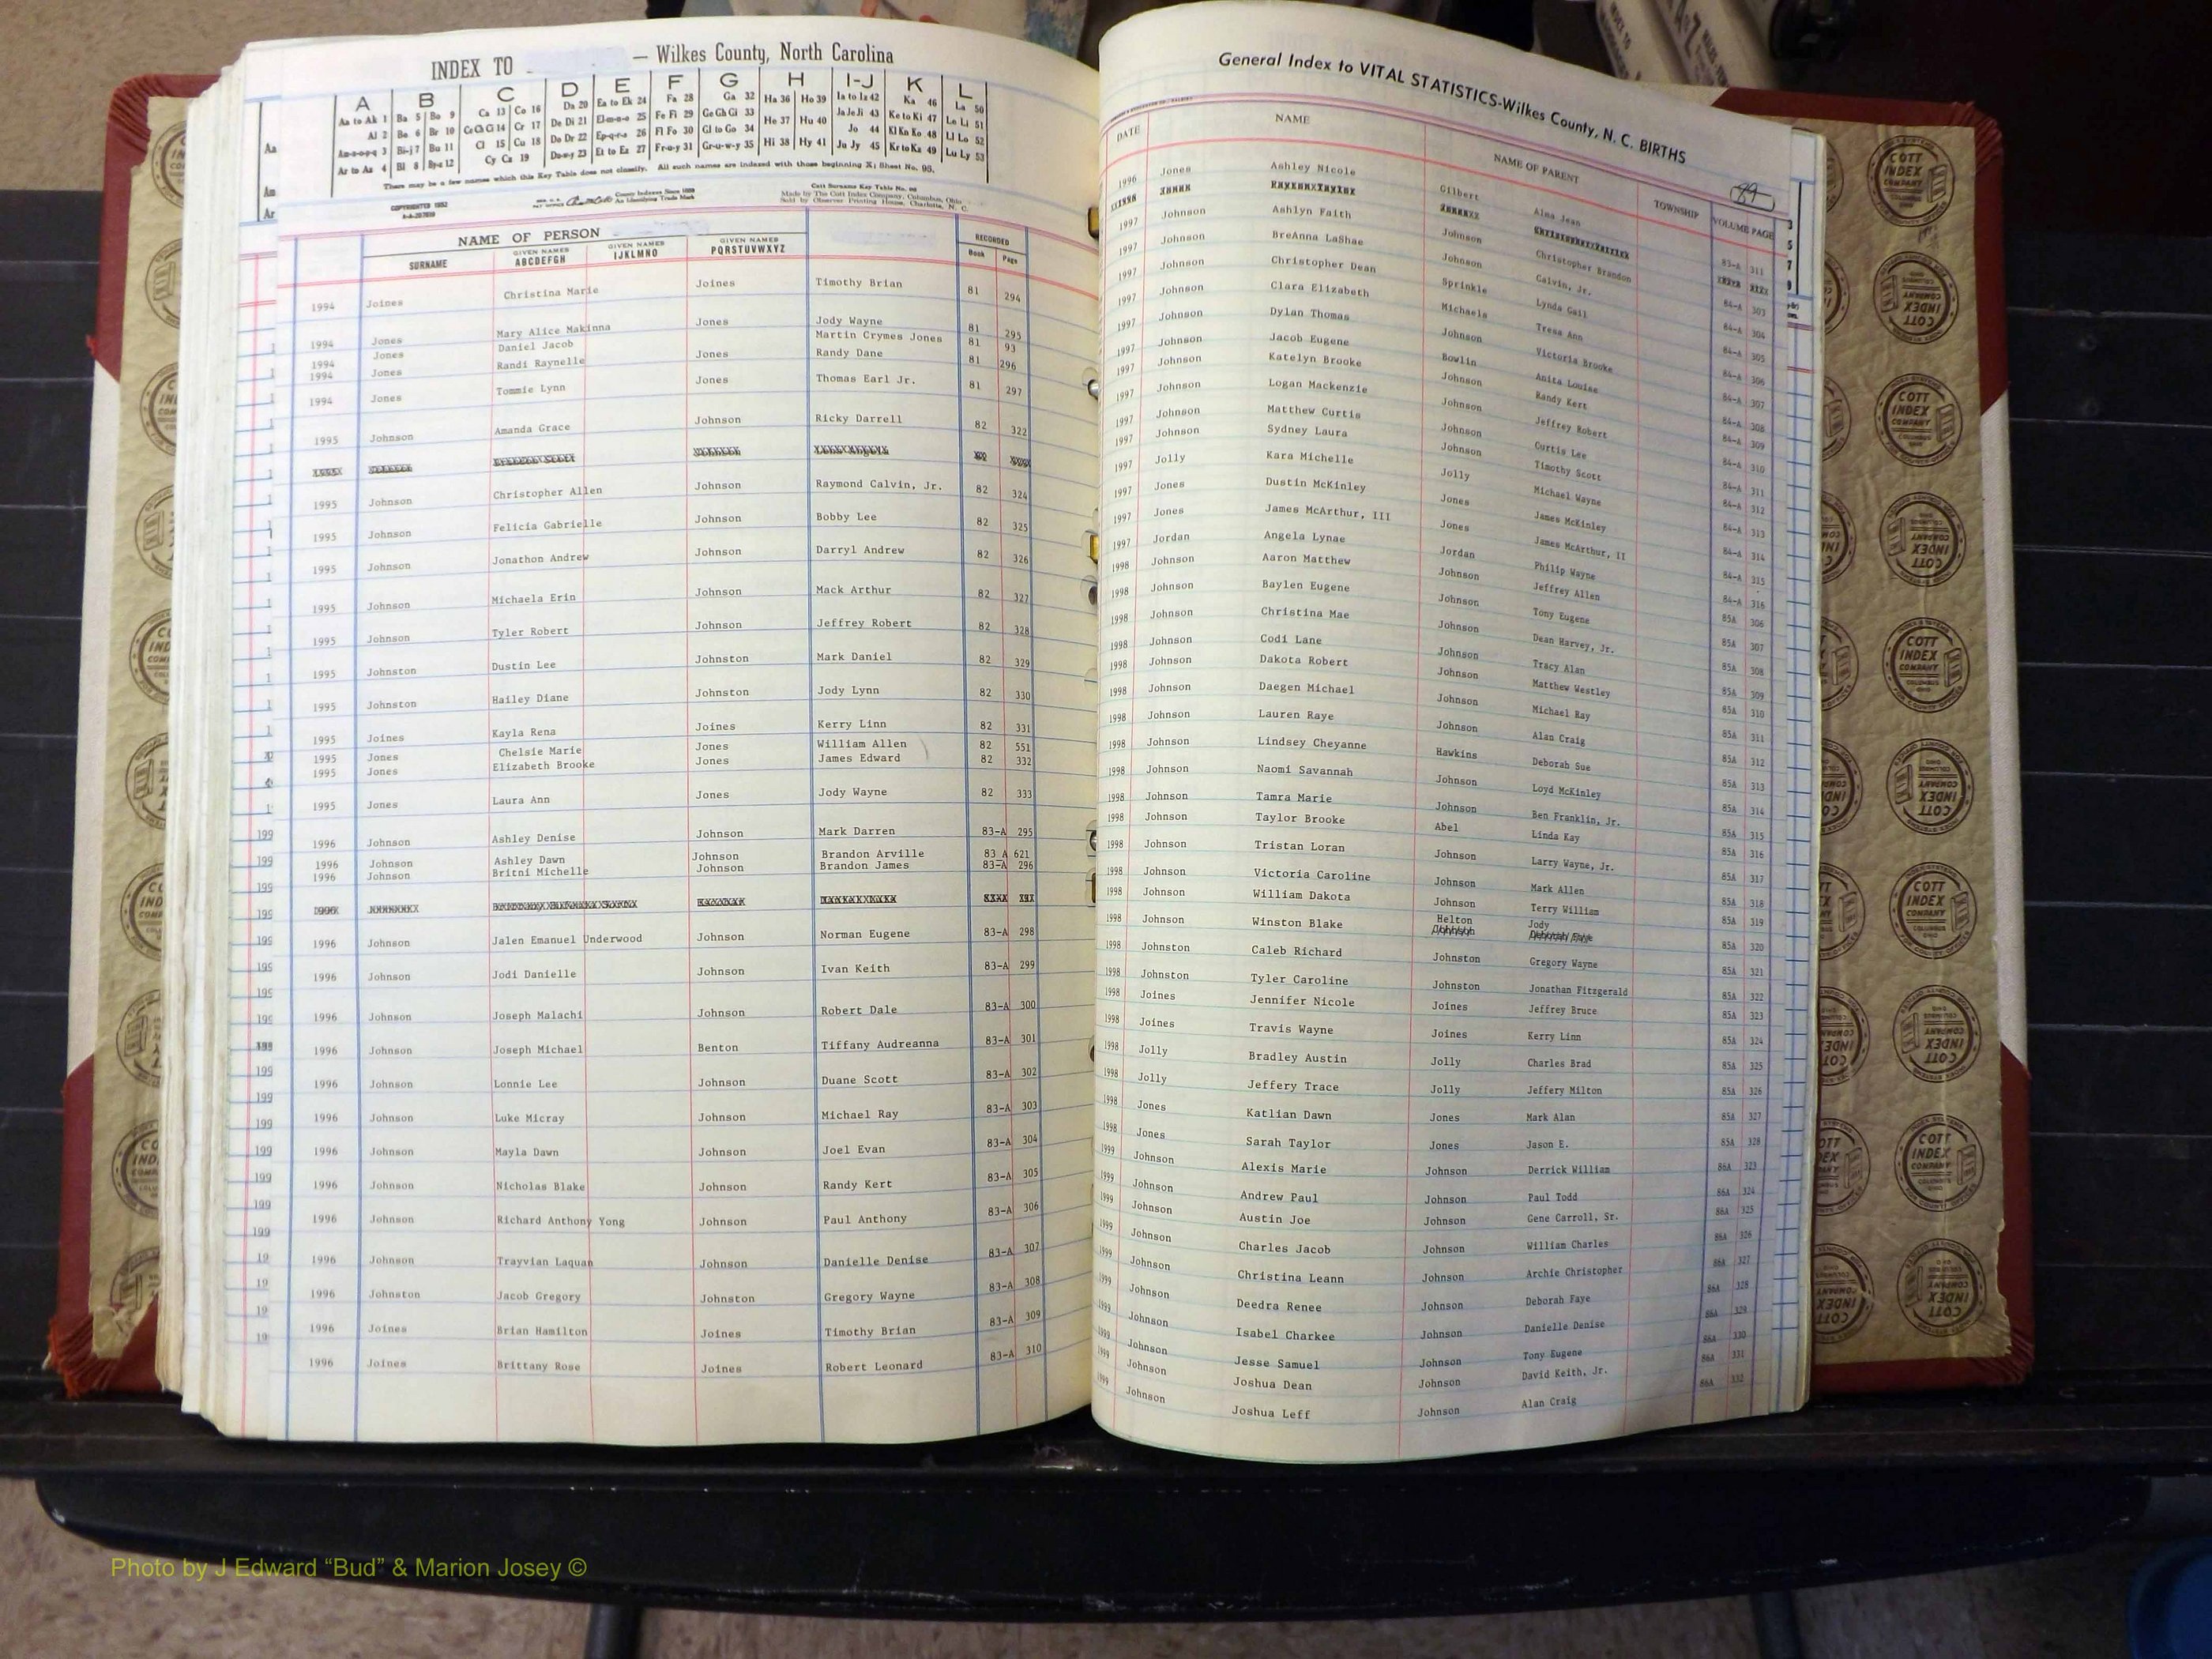 INDEX TO — Wilkes County, North Carolina
A B C D E F G H I-J K L
Aa to Ak 1 Ba 5 Bo 9 Ca 13 Co 16 Da 20 Ea to Ek 24 Fa 28 Ga 32 Ha 36 Ho 39 Ia to Iz 42 Ka 46 La 50
Al 2 Be 6 Br 10 Ce Ch Ci 14 Cr 17 De Di 21 El-m-n-o 25 Fe Fi 29 Ge Gh Gi 33 He 37 Hu 40 Ja Je Ji 43 Ke to Ki 47 Le Li 51
Am-n-o-p-q 3 Bi-j 7 Bu 11 Cl 15 Cu 18 Do Dr 22 Ep-q-r-s 26 Fl Fo 30 Gl to Go 34 Hi 38 Hy 41 Jo 44 Kl Kn Ko 48 Ll Lo 52
Ar to Az 4 Bl 8 By-z 12 Cy Cz 19 Du-w-y 23 Et to Ez 27 Fr-u-y 31 Gr-u-w-y 35 Ju Jy 45 Kr to Kz 49 Lu Ly 53
There may be a few names which this Key Table does not classify. All such names are indexed with those beginning X; Sheet No. 95.
COPYRIGHTED 1952
Cott Surname Key Table No. 96
Made by The Cott Index Company, Columbus, Ohio
Sold by Observer Printing House, Charlotte, N. C.
NAME OF PERSON RECORDED
SURNAME GIVEN NAMES ABCDEFGH GIVEN NAMES IJKLMNO GIVEN NAMES PQRSTUVWXYZ Book Page
1994 Joines Christina Marie Joines Timothy Brian 81 294
1994 Jones Mary Alice Makinna Jones Jody Wayne 81 295
1994 Jones Daniel Jacob Martin Crymes Jones 81 93
1994 Jones Randi Raynelle Jones Randy Dane 81 296
1994 Jones Tommie Lynn Jones Thomas Earl Jr. 81 297
1995 Johnson Amanda Grace Johnson Ricky Darrell 82 322
1995 Johnson Christopher Allen Johnson Raymond Calvin, Jr. 82 324
1995 Johnson Felicia Gabrielle Johnson Bobby Lee 82 325
1995 Johnson Jonathon Andrew Johnson Darryl Andrew 82 326
1995 Johnson Michaela Erin Johnson Mack Arthur 82 327
1995 Johnson Tyler Robert Johnson Jeffrey Robert 82 328
1995 Johnston Dustin Lee Johnston Mark Daniel 82 329
1995 Johnston Hailey Diane Johnston Jody Lynn 82 330
1995 Joines Kayla Rena Joines Kerry Linn 82 331
1995 Jones Chelsie Marie Jones William Allen 82 551
1995 Jones Elizabeth Brooke Jones James Edward 82 332
1995 Jones Laura Ann Jones Jody Wayne 82 333
1996 Johnson Ashley Denise Johnson Mark Darren 83-A 295
1996 Johnson Ashley Dawn Johnson Brandon Arville 83 A 621
1996 Johnson Britni Michelle Johnson Brandon James 83-A 296
1996 Johnson Jalen Emanuel Underwood Johnson Norman Eugene 83-A 298
1996 Johnson Jodi Danielle Johnson Ivan Keith 83-A 299
1996 Johnson Joseph Malachi Johnson Robert Dale 83-A 300
1996 Johnson Joseph Michael Benton Tiffany Audreanna 83-A 301
1996 Johnson Lonnie Lee Johnson Duane Scott 83-A 302
1996 Johnson Luke Micray Johnson Michael Ray 83-A 303
1996 Johnson Mayla Dawn Johnson Joel Evan 83-A 304
1996 Johnson Nicholas Blake Johnson Randy Kert 83-A 305
1996 Johnson Richard Anthony Yong Johnson Paul Anthony 83-A 306
1996 Johnson Trayvian Laquan Johnson Danielle Denise 83-A 307
1996 Johnston Jacob Gregory Johnston Gregory Wayne 83-A 308
1996 Joines Brian Hamilton Joines Timothy Brian 83-A 309
1996 Joines Brittany Rose Joines Robert Leonard 83-A 310
General Index to VITAL STATISTICS-Wilkes County, N. C. BIRTHS
89
DATE NAME NAME OF PARENT TOWNSHIP VOLUME PAGE
1996 Jones Ashley Nicole Gilbert Alma Jean 83-A 311
1997 Johnson Ashlyn Faith Johnson Christopher Brandon 84-A 303
1997 Johnson BreAnna LaShae Johnson Calvin, Jr. 84-A 304
1997 Johnson Christopher Dean Sprinkle Lynda Gail 84-A 305
1997 Johnson Clara Elizabeth Michaels Tresa Ann 84-A 306
1997 Johnson Dylan Thomas Johnson Victoria Brooke 84-A 307
1997 Johnson Jacob Eugene Bowlin Anita Louise 84-A 308
1997 Johnson Katelyn Brooke Johnson Randy Kert 84-A 309
1997 Johnson Logan Mackenzie Johnson Jeffrey Robert 84-A 310
1997 Johnson Matthew Curtis Johnson Curtis Lee 84-A 311
1997 Johnson Sydney Laura Johnson Timothy Scott 84-A 312
1997 Jolly Kara Michelle Jolly Michael Wayne 84-A 313
1997 Jones Dustin McKinley Jones James McKinley 84-A 314
1997 Jones James McArthur, III Jones James McArthur, II 84-A 315
1997 Jordan Angela Lynae Jordan Philip Wayne 84-A 316
1998 Johnson Aaron Matthew Johnson Jeffrey Allen 85A 306
1998 Johnson Baylen Eugene Johnson Tony Eugene 85A 307
1998 Johnson Christina Mae Johnson Dean Harvey, Jr. 85A 308
1998 Johnson Codi Lane Johnson Tracy Alan 85A 309
1998 Johnson Dakota Robert Johnson Matthew Westley 85A 310
1998 Johnson Daegen Michael Johnson Michael Ray 85A 311
1998 Johnson Lauren Raye Johnson Alan Craig 85A 312
1998 Johnson Lindsey Cheyanne Hawkins Deborah Sue 85A 313
1998 Johnson Naomi Savannah Johnson Loyd McKinley 85A 314
1998 Johnson Tamra Marie Johnson Ben Franklin, Jr. 85A 315
1998 Johnson Taylor Brooke Abel Linda Kay 85A 316
1998 Johnson Tristan Loran Johnson Larry Wayne, Jr. 85A 317
1998 Johnson Victoria Caroline Johnson Mark Allen 85A 318
1998 Johnson William Dakota Johnson Terry William 85A 319
1998 Johnson Winston Blake Helton Jody 85A 320
1998 Johnston Caleb Richard Johnston Gregory Wayne 85A 321
1998 Johnston Tyler Caroline Johnston Jonathan Fitzgerald 85A 322
1998 Joines Jennifer Nicole Joines Jeffrey Bruce 85A 323
1998 Joines Travis Wayne Joines Kerry Linn 85A 324
1998 Jolly Bradley Austin Jolly Charles Brad 85A 325
1998 Jolly Jeffery Trace Jolly Jeffery Milton 85A 326
1998 Jones Katlian Dawn Jones Mark Alan 85A 327
1998 Jones Sarah Taylor Jones Jason E. 85A 328
1999 Johnson Alexis Marie Johnson Derrick William 86A 323
1999 Johnson Andrew Paul Johnson Paul Todd 86A 324
1999 Johnson Austin Joe Johnson Gene Carroll, Sr. 86A 325
1999 Johnson Charles Jacob Johnson William Charles 86A 326
1999 Johnson Christina Leann Johnson Archie Christopher 86A 327
1999 Johnson Deedra Renee Johnson Deborah Faye 86A 328
1999 Johnson Isabel Charkee Johnson Danielle Denise 86A 329
1999 Johnson Jesse Samuel Johnson Tony Eugene 86A 330
1999 Johnson Joshua Dean Johnson David Keith, Jr. 86A 331
1999 Johnson Joshua Leff Johnson Alan Craig 86A 332
COTT INDEX COMPANY
Photo by J Edward “Bud” & Marion Josey ©